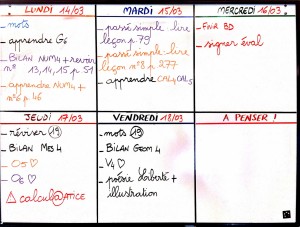 LUNDI 14/03
- mots
- apprendre G6
- BILAN NUM4 + réviser
n° 13, 14, 15 p. 51
- apprendre NUM4 +
n°6 p. 46
MARDI 15/03
- passé simple - lire
leçon p. 79
- passé simple - lire
leçon n°8 p. 277
- apprendre CAL4 CAL5
MERCREDI 16/03
- FINIR BD
- signer éval
JEUDI 17/03
- réviser 19
- BILAN MES 4
- O5 ♡
- O6 ♡
⚠ calcul@TICE
VENDREDI 18/03
- mots 19
- BILAN GEOM 4
- V4 ♡
- poésie liberté +
illustration
A PENSER !